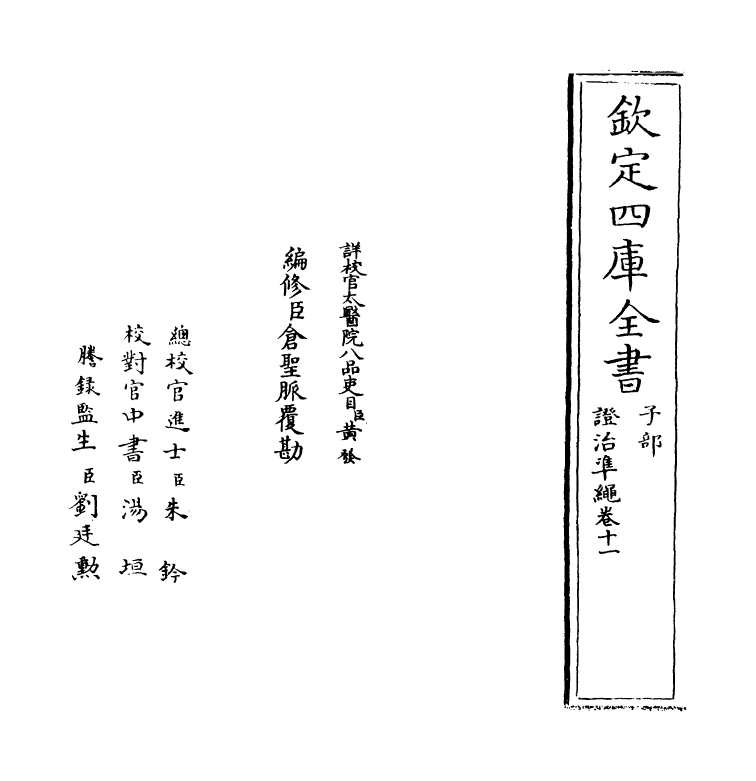 欽定四庫全書
子部
證治準繩卷十一
詳校官太醫院八品吏目臣黃
編修臣倉聖脈覆勘
總校官進士臣朱鈐
校對官中書臣湯垣
謄錄監生臣劉廷勳